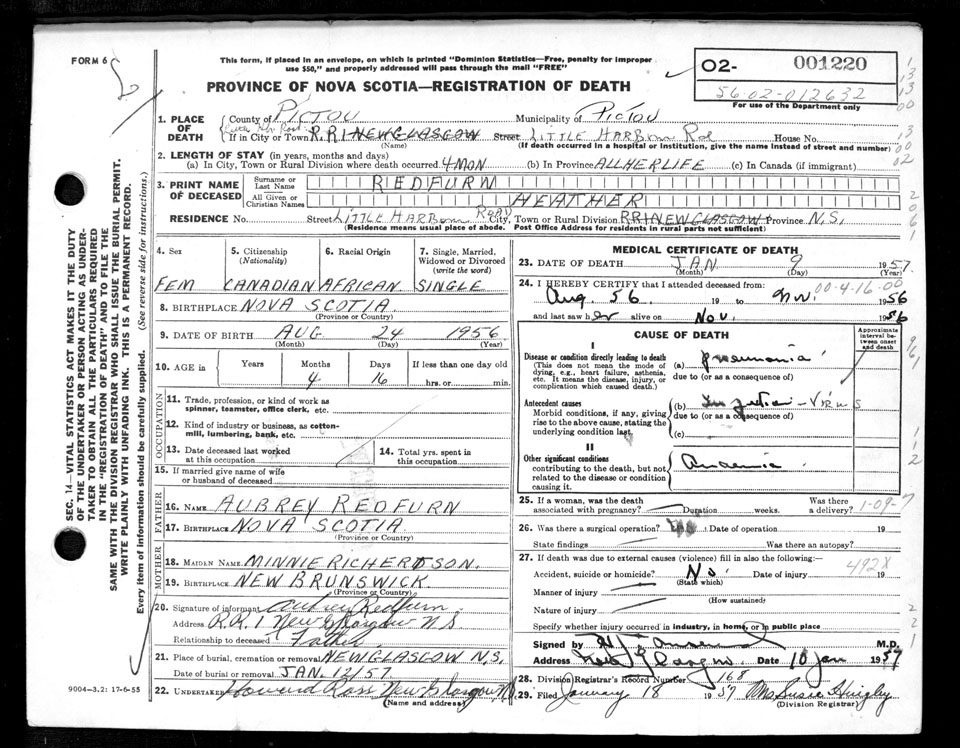 FORM 6
This form, if placed in an envelope, on which is printed "Dominion Statistics—Free, penalty for improper
use $50," and properly addressed will pass through the mail "FREE"
PROVINCE OF NOVA SCOTIA—REGISTRATION OF DEATH
02- 001220
56-02-012632
For use of the Department only
1. PLACE OF DEATH
County of PICTOU Municipality of PICTOU
If in City or Town R.R.1 NEW GLASGOW Street LITTLE HARBOUR Rd House No.
(Name) (If death occurred in a hospital or institution, give the name instead of street and number)
2. LENGTH OF STAY (in years, months and days)
(a) In City, Town or Rural Division where death occurred 4 MON (b) In Province ALL HER LIFE (c) In Canada (if immigrant)
3. PRINT NAME OF DECEASED
Surname or Last Name REDFURN
All Given or Christian Names HEATHER
RESIDENCE No. Street LITTLE HARBOUR ROAD City, Town or Rural Division R.R.1 NEW GLASGOW Province N.S.
(Residence means usual place of abode. Post Office Address for residents in rural parts not sufficient)
4. Sex 5. Citizenship (Nationality) 6. Racial Origin 7. Single, Married, Widowed or Divorced (write the word)
FEM CANADIAN AFRICAN SINGLE
8. BIRTHPLACE NOVA SCOTIA
(Province or Country)
9. DATE OF BIRTH AUG 24 1956
(Month) (Day) (Year)
10. AGE in Years Months Days If less than one day old
4 16 hrs. or min.
OCCUPATION
11. Trade, profession, or kind of work as
spinner, teamster, office clerk, etc.
12. Kind of industry or business, as cotton-
mill, lumbering, bank, etc.
13. Date deceased last worked
at this occupation
14. Total yrs. spent in
this occupation
15. If married give name of wife
or husband of deceased
FATHER
16. NAME AUBREY REDFURN
17. BIRTHPLACE NOVA SCOTIA
(Province or Country)
MOTHER
18. MAIDEN NAME MINNIE RICHERDSON.
19. BIRTHPLACE NEW BRUNSWICK
(Province or Country)
20. Signature of informant Aubrey Redfurn
Address R.R.1 New Glasgow N S
Relationship to deceased Father
21. Place of burial, cremation or removal NEW GLASGOW N.S.
Date of burial or removal JAN. 12/57
22. UNDERTAKER Howard Ross New Glasgow N.S.
(Name and address)
MEDICAL CERTIFICATE OF DEATH
23. DATE OF DEATH JAN 9 1957.
(Month) (Day) (Year)
24. I HEREBY CERTIFY that I attended deceased from: 00-4-16-00
Aug. 56. 19 to Nov. 1956
and last saw her alive on Nov. 1956
CAUSE OF DEATH
Approximate interval between onset and death
I
Disease or condition directly leading to death
(This does not mean the mode of dying, e.g., heart failure, asthenia, etc. It means the disease, injury, or complication which caused death.)
(a) pneumonia
due to (or as a consequence of)
Antecedent causes
Morbid conditions, if any, giving rise to the above cause, stating the underlying condition last.
(b) Infection - Virus
due to (or as a consequence of)
(c)
II
Other significant conditions
contributing to the death, but not related to the disease or condition causing it.
Anaemia
25. If a woman, was the death associated with pregnancy? Duration weeks. Was there a delivery?
1-09-7
26. Was there a surgical operation? No Date of operation 19
State findings Was there an autopsy?
27. If death was due to external causes (violence) fill in also the following:
492X
Accident, suicide or homicide? No. Date of injury 19
(State which)
Manner of injury
(How sustained)
Nature of injury
Specify whether injury occurred in industry, in home, or in public place
Signed by M.D.
Address New Glasgow Date 10 Jan 1957
28. Division Registrar's Record Number 168
29. Filed January 18 1957 Mrs Susie
(Division Registrar)
SEC. 14—VITAL STATISTICS ACT MAKES IT THE DUTY
OF THE UNDERTAKER OR PERSON ACTING AS UNDER-
TAKER TO OBTAIN ALL THE PARTICULARS REQUIRED
IN THE "REGISTRATION OF DEATH" AND TO FILE THE
SAME WITH THE DIVISION REGISTRAR WHO SHALL ISSUE THE BURIAL PERMIT.
WRITE PLAINLY WITH UNFADING INK. THIS IS A PERMANENT RECORD.
Every item of information should be carefully supplied. (See reverse side for instructions.)
9004-3.2: 17-6-55